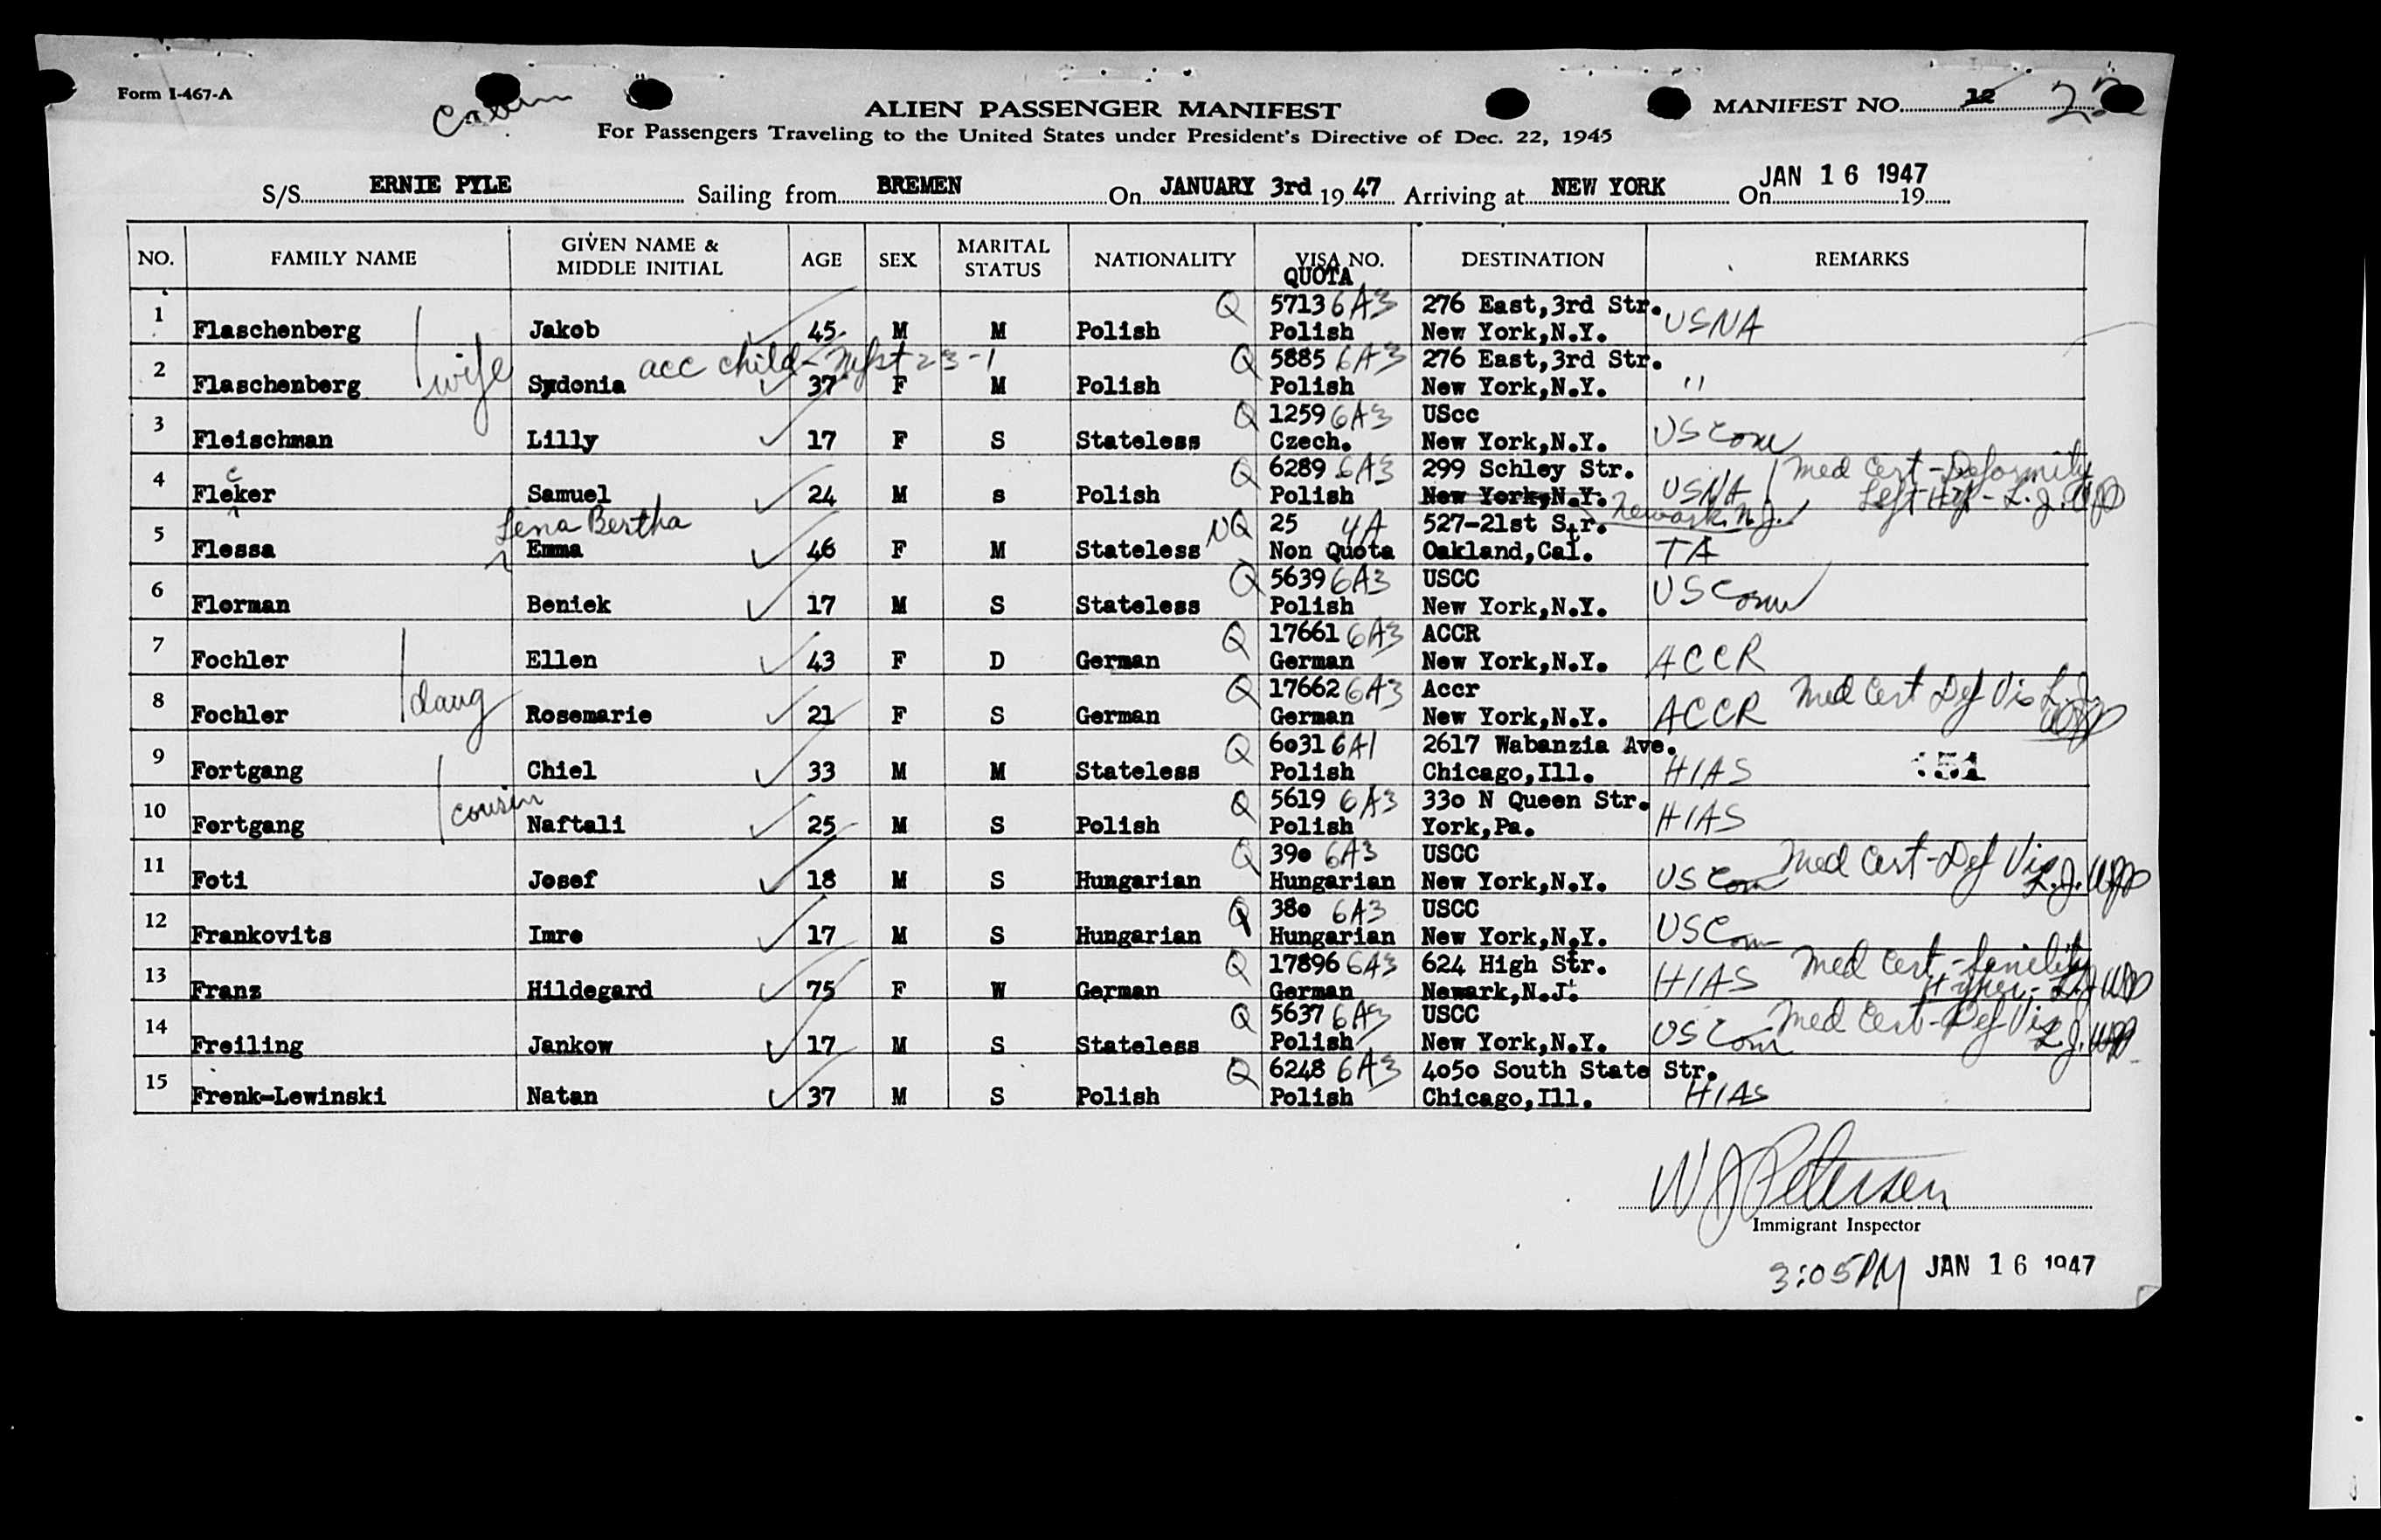 Form I-467-A
ALIEN PASSENGER MANIFEST
MANIFEST NO. 12 22
For Passengers Traveling to the United States under President's Directive of Dec. 22, 1945
S/S ERNIE PYLE Sailing from BREMEN On JANUARY 3rd 19 47 Arriving at NEW YORK On JAN 16 1947 19
NO. FAMILY NAME GIVEN NAME & MIDDLE INITIAL AGE SEX MARITAL STATUS NATIONALITY VISA NO. QUOTA DESTINATION REMARKS
1 Flaschenberg Jakob 45 M M Polish Q 5713 6A3 Polish 276 East,3rd Str. New York,N.Y. USNA
2 Flaschenberg wife Sydonia acc child - 23-1 37 F M Polish Q 5885 6A3 Polish 276 East,3rd Str. New York,N.Y. "
3 Fleischman Lilly 17 F S Stateless Q 1259 6A3 Czech. UScc New York,N.Y. US Com
4 Fleker c Samuel 24 M s Polish Q 6289 6A3 Polish 299 Schley Str. New York,N.Y. Newark N.J. USNA Med Cert - Deformity Left Hip - L.J.
5 Flessa Lena Bertha Emma 46 F M Stateless NQ 25 4A Non Quota 527-21st Str. Oakland,Cal. TA
6 Florman Beniek 17 M S Stateless Q 5639 6A3 Polish USCC New York,N.Y. US Com
7 Fochler Ellen 43 F D German Q 17661 6A3 German ACCR New York,N.Y. ACCR
8 Fochler daug Rosemarie 21 F S German Q 17662 6A3 German Accr New York,N.Y. ACCR Med Cert Def Vis L.J.
9 Fortgang Chiel 33 M M Stateless Q 6031 6A1 Polish 2617 Wabanzia Ave. Chicago,Ill. HIAS 151
10 Fortgang cousin Naftali 25 M S Polish Q 5619 6A3 Polish 330 N Queen Str. York,Pa. HIAS
11 Foti Josef 18 M S Hungarian Q 390 6A3 Hungarian USCC New York,N.Y. US Com Med Cert - Def Vis L.J.
12 Frankovits Imre 17 M S Hungarian Q 380 6A3 Hungarian USCC New York,N.Y. US Com
13 Franz Hildegard 75 F W German Q 17896 6A3 German 624 High Str. Newark,N.J. HIAS Med Cert - Senility
14 Freiling Jankow 17 M S Stateless Q 5637 6A3 Polish USCC New York,N.Y. US Com Med Cert - Def Vis L.J.
15 Frenk-Lewinski Natan 37 M S Polish Q 6248 6A3 Polish 4050 South State Str. Chicago,Ill. HIAS
W J Petersen
Immigrant Inspector
3:05 PM JAN 16 1947